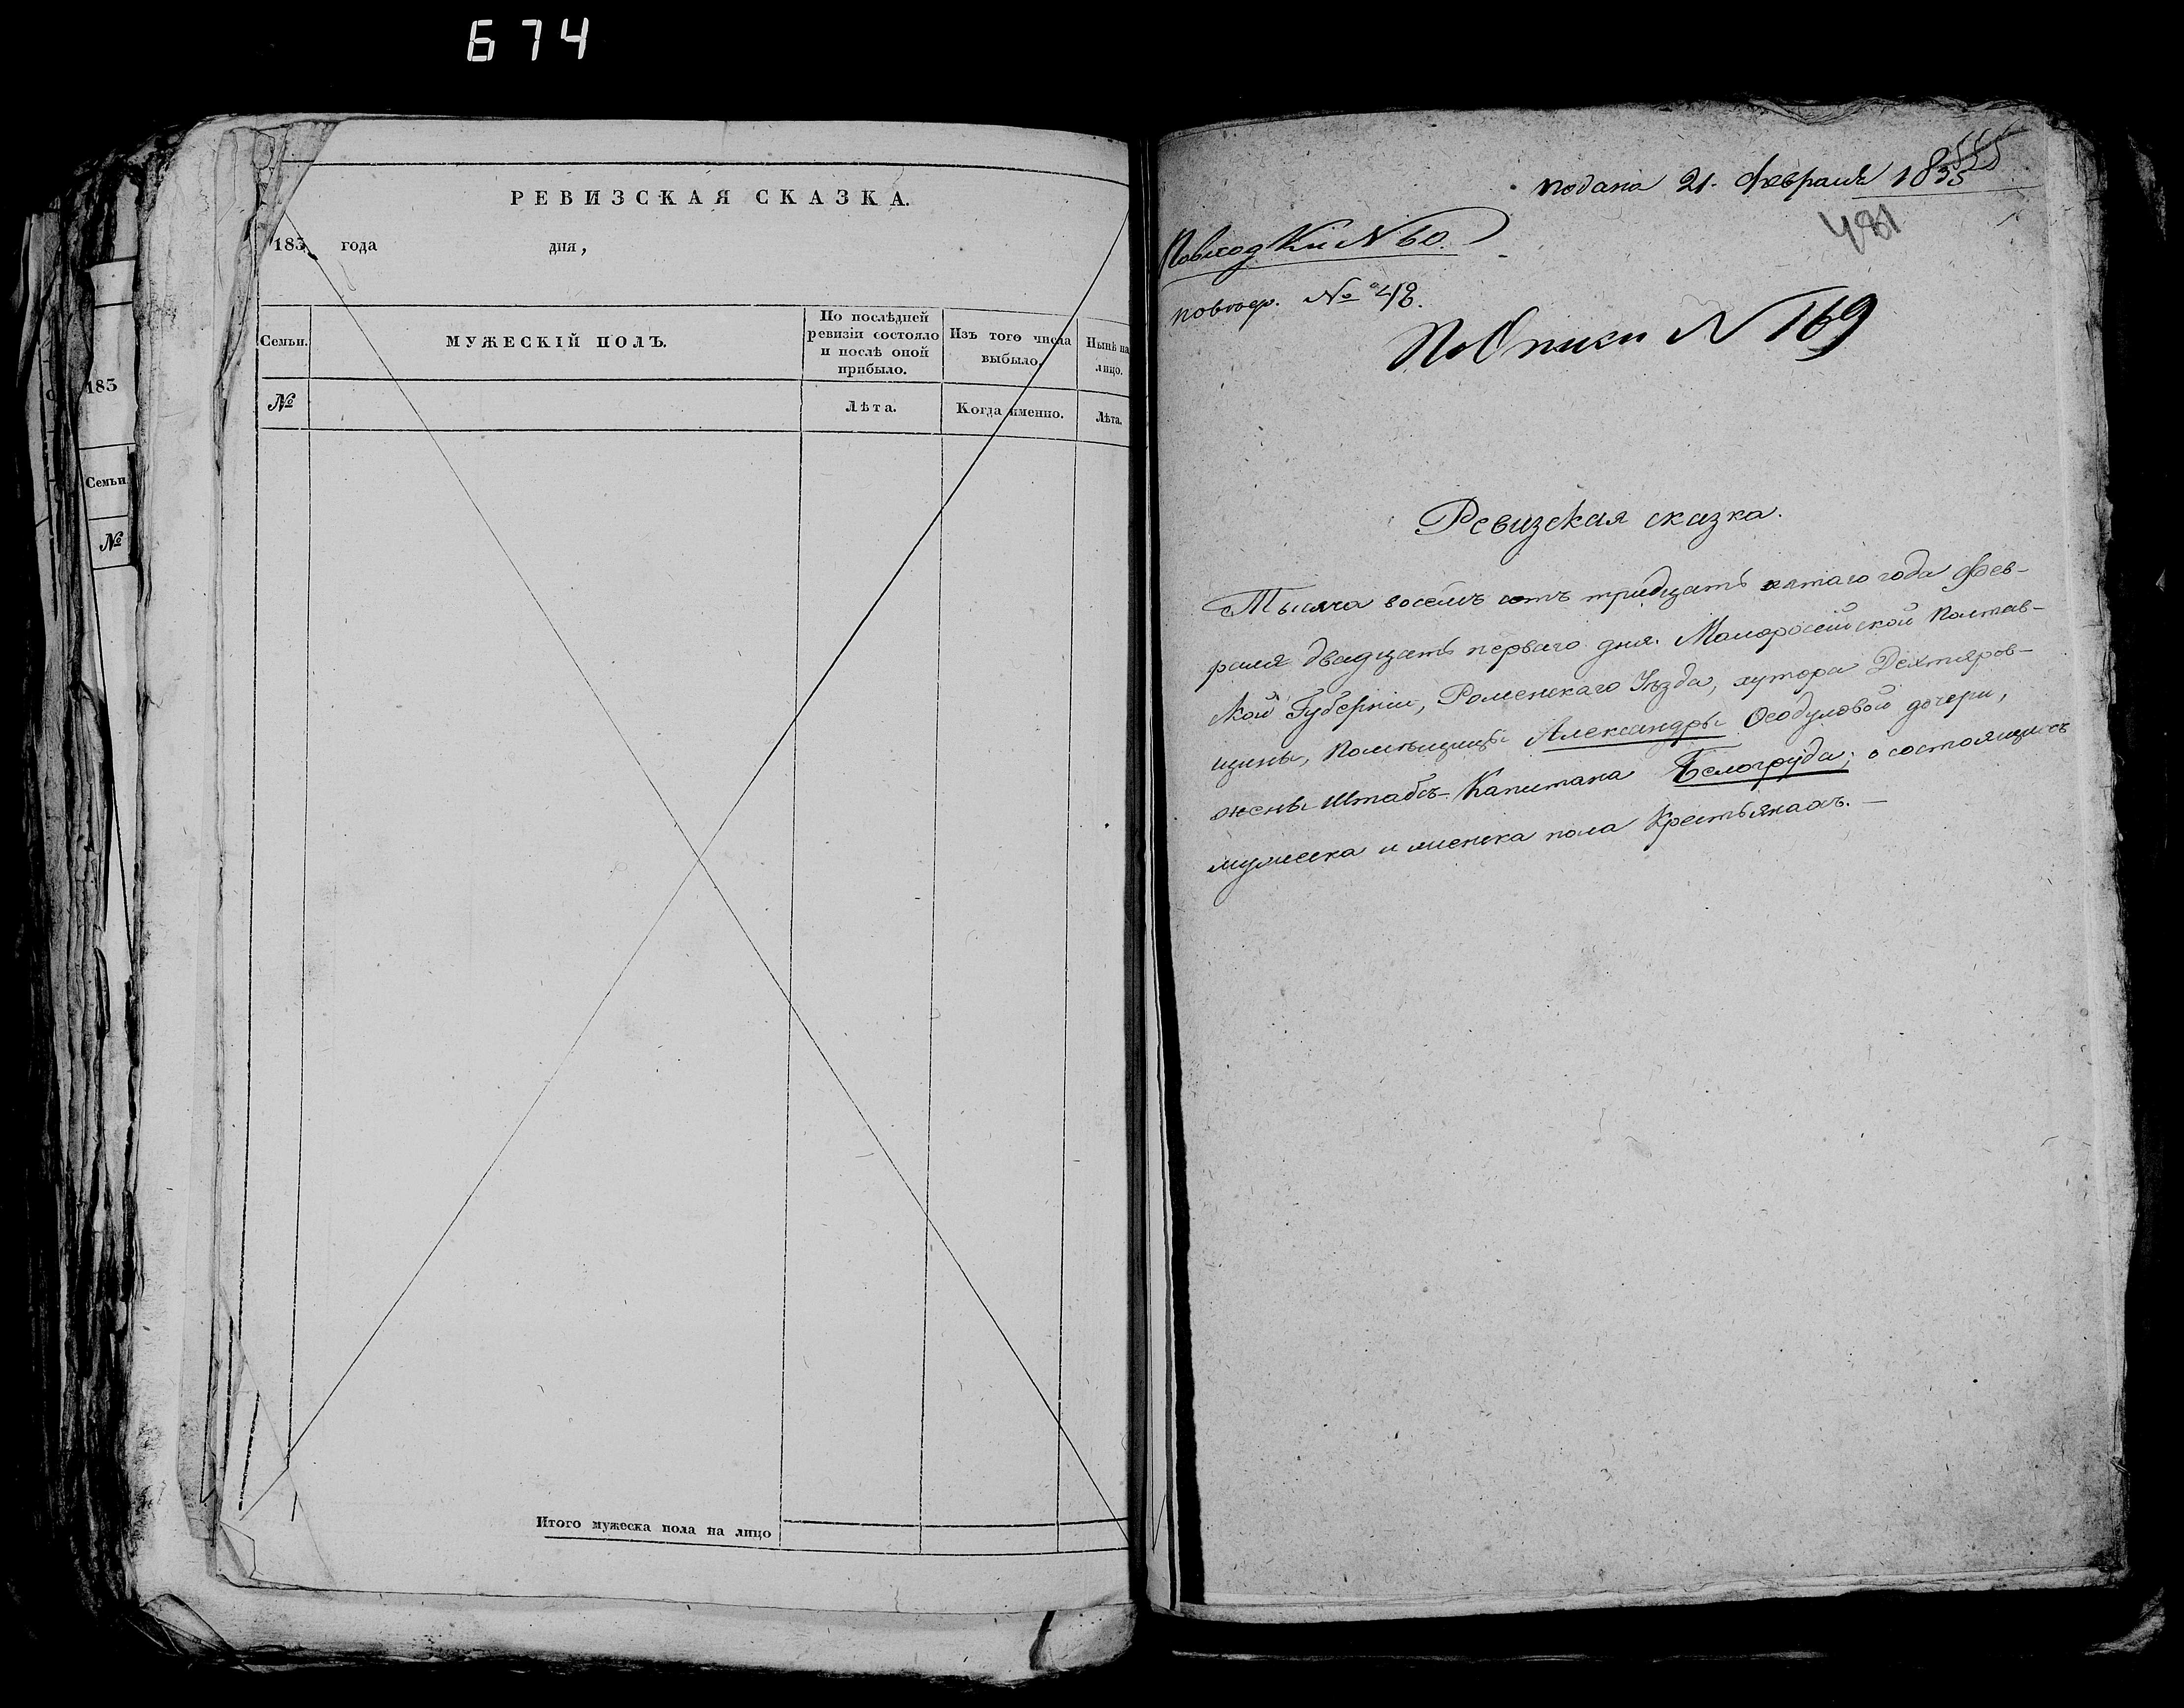 674
РЕВИЗСКАЯ СКАЗКА.
183 года дня,
Семьи.
МУЖЕСКІЙ ПОЛЪ.
По послѣдней
ревизіи состояло
и послѣ оной
прибыло.
Изъ того числа
выбыло.
Нынѣ на
лицо.
№
Лѣта.
Когда именно.
Лѣта.
Итого мужеска пола на лицо
183
Семьи
№
подана 21. февраля 1835
481
№ 60.
№ 48.
По описи № 169
Ревизская сказка.
Тысяча восемъ сотъ тридцать пятаго года Фев-
раля двадцать перваго дня. Малороссійской Полтав-
ской Губерніи, Роменскаго Уѣзда, хутора Дехтяров-
щины, Помѣщицы Александры Ѳеодуловой дочери,
жены Штабсъ-Капитана Белогруда; о состоящихъ
мужеска и женска пола Крестьянахъ. —